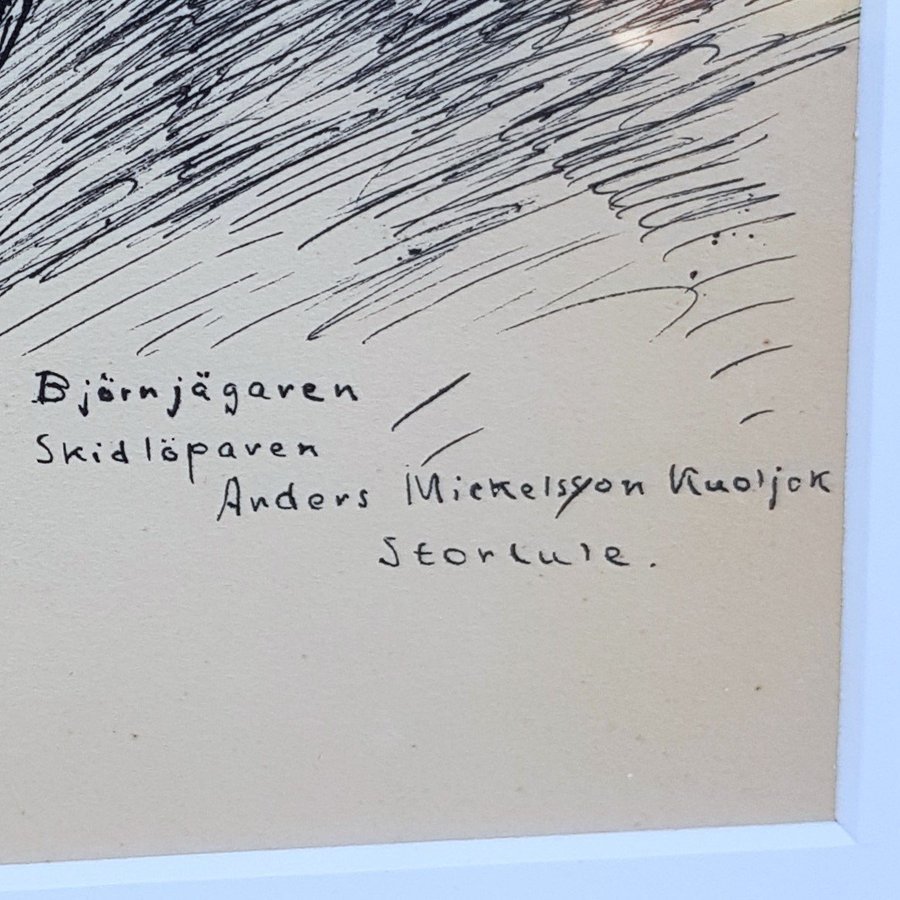 Björnjägaren
Skidlöparen
Anders Mickelsson Kuoljok
Storlule.